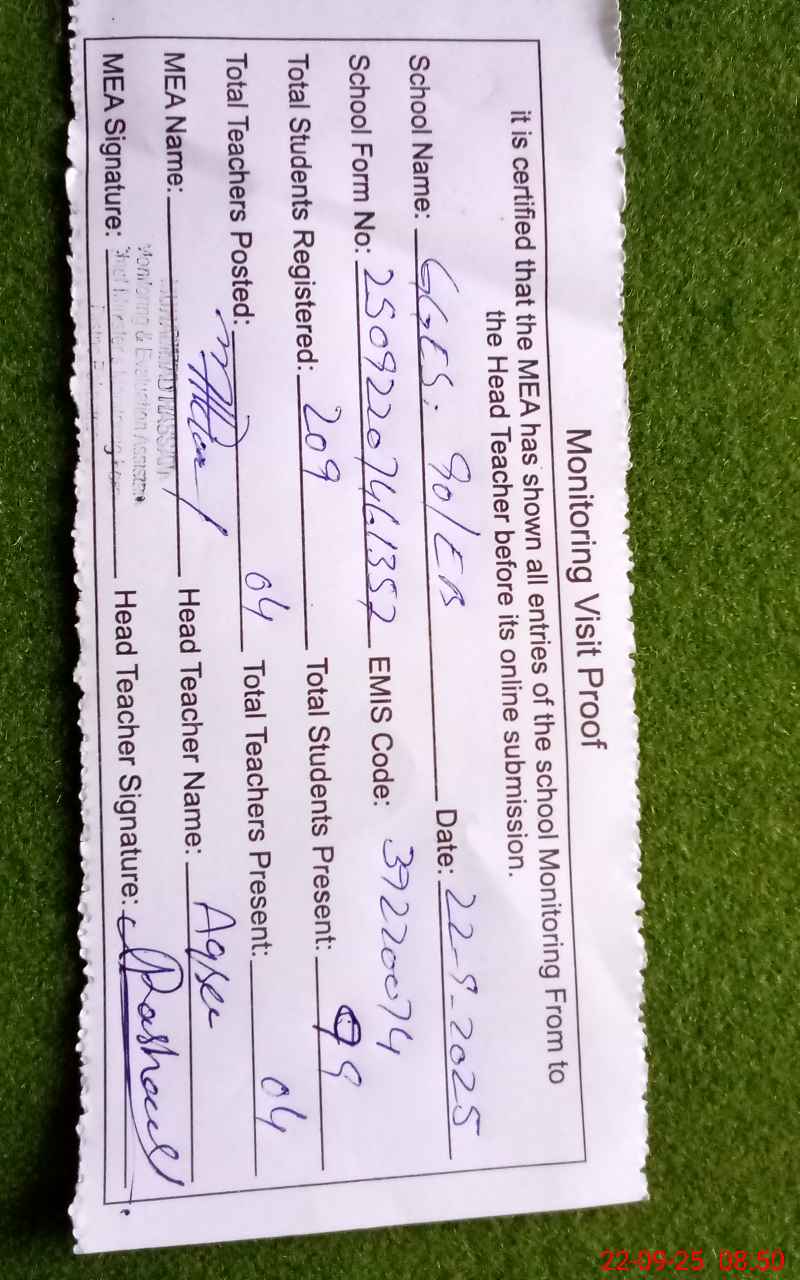 Monitoring Visit Proof
it is certified that the MEA has shown all entries of the school Monitoring From to
the Head Teacher before its online submission.
School Name: GGES; 90/EB Date: 22-9-2025
School Form No: 25092207461352 EMIS Code: 39220074
Total Students Registered: 209 Total Students Present: 99
Total Teachers Posted: 04 Total Teachers Present: 04
MEA Name: Head Teacher Name:
MEA Signature: Head Teacher Signature:
Monitoring & Evaluation Assistant
22-09-25 08.50